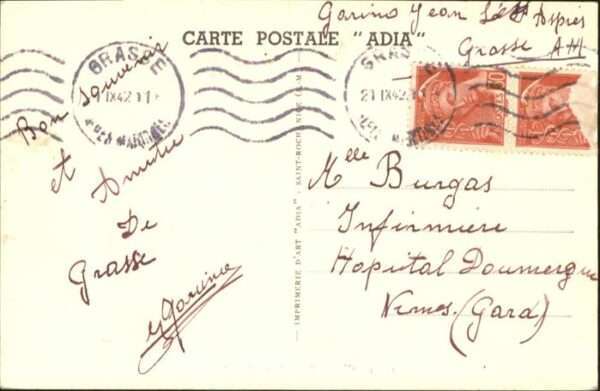 Garino Jean
Grasse AM
CARTE POSTALE "ADIA"
GRASSE
21 IX 42
ALPES MARITIMES
GRASSE
21 IX 42
Bon souvenir
et Amitié
De
Grasse
Garino
IMPRIMERIE D'ART "ADIA"
POSTES
Melle Burgas
Infirmiere
Hopital Doumergue
Nimes. (Gard)